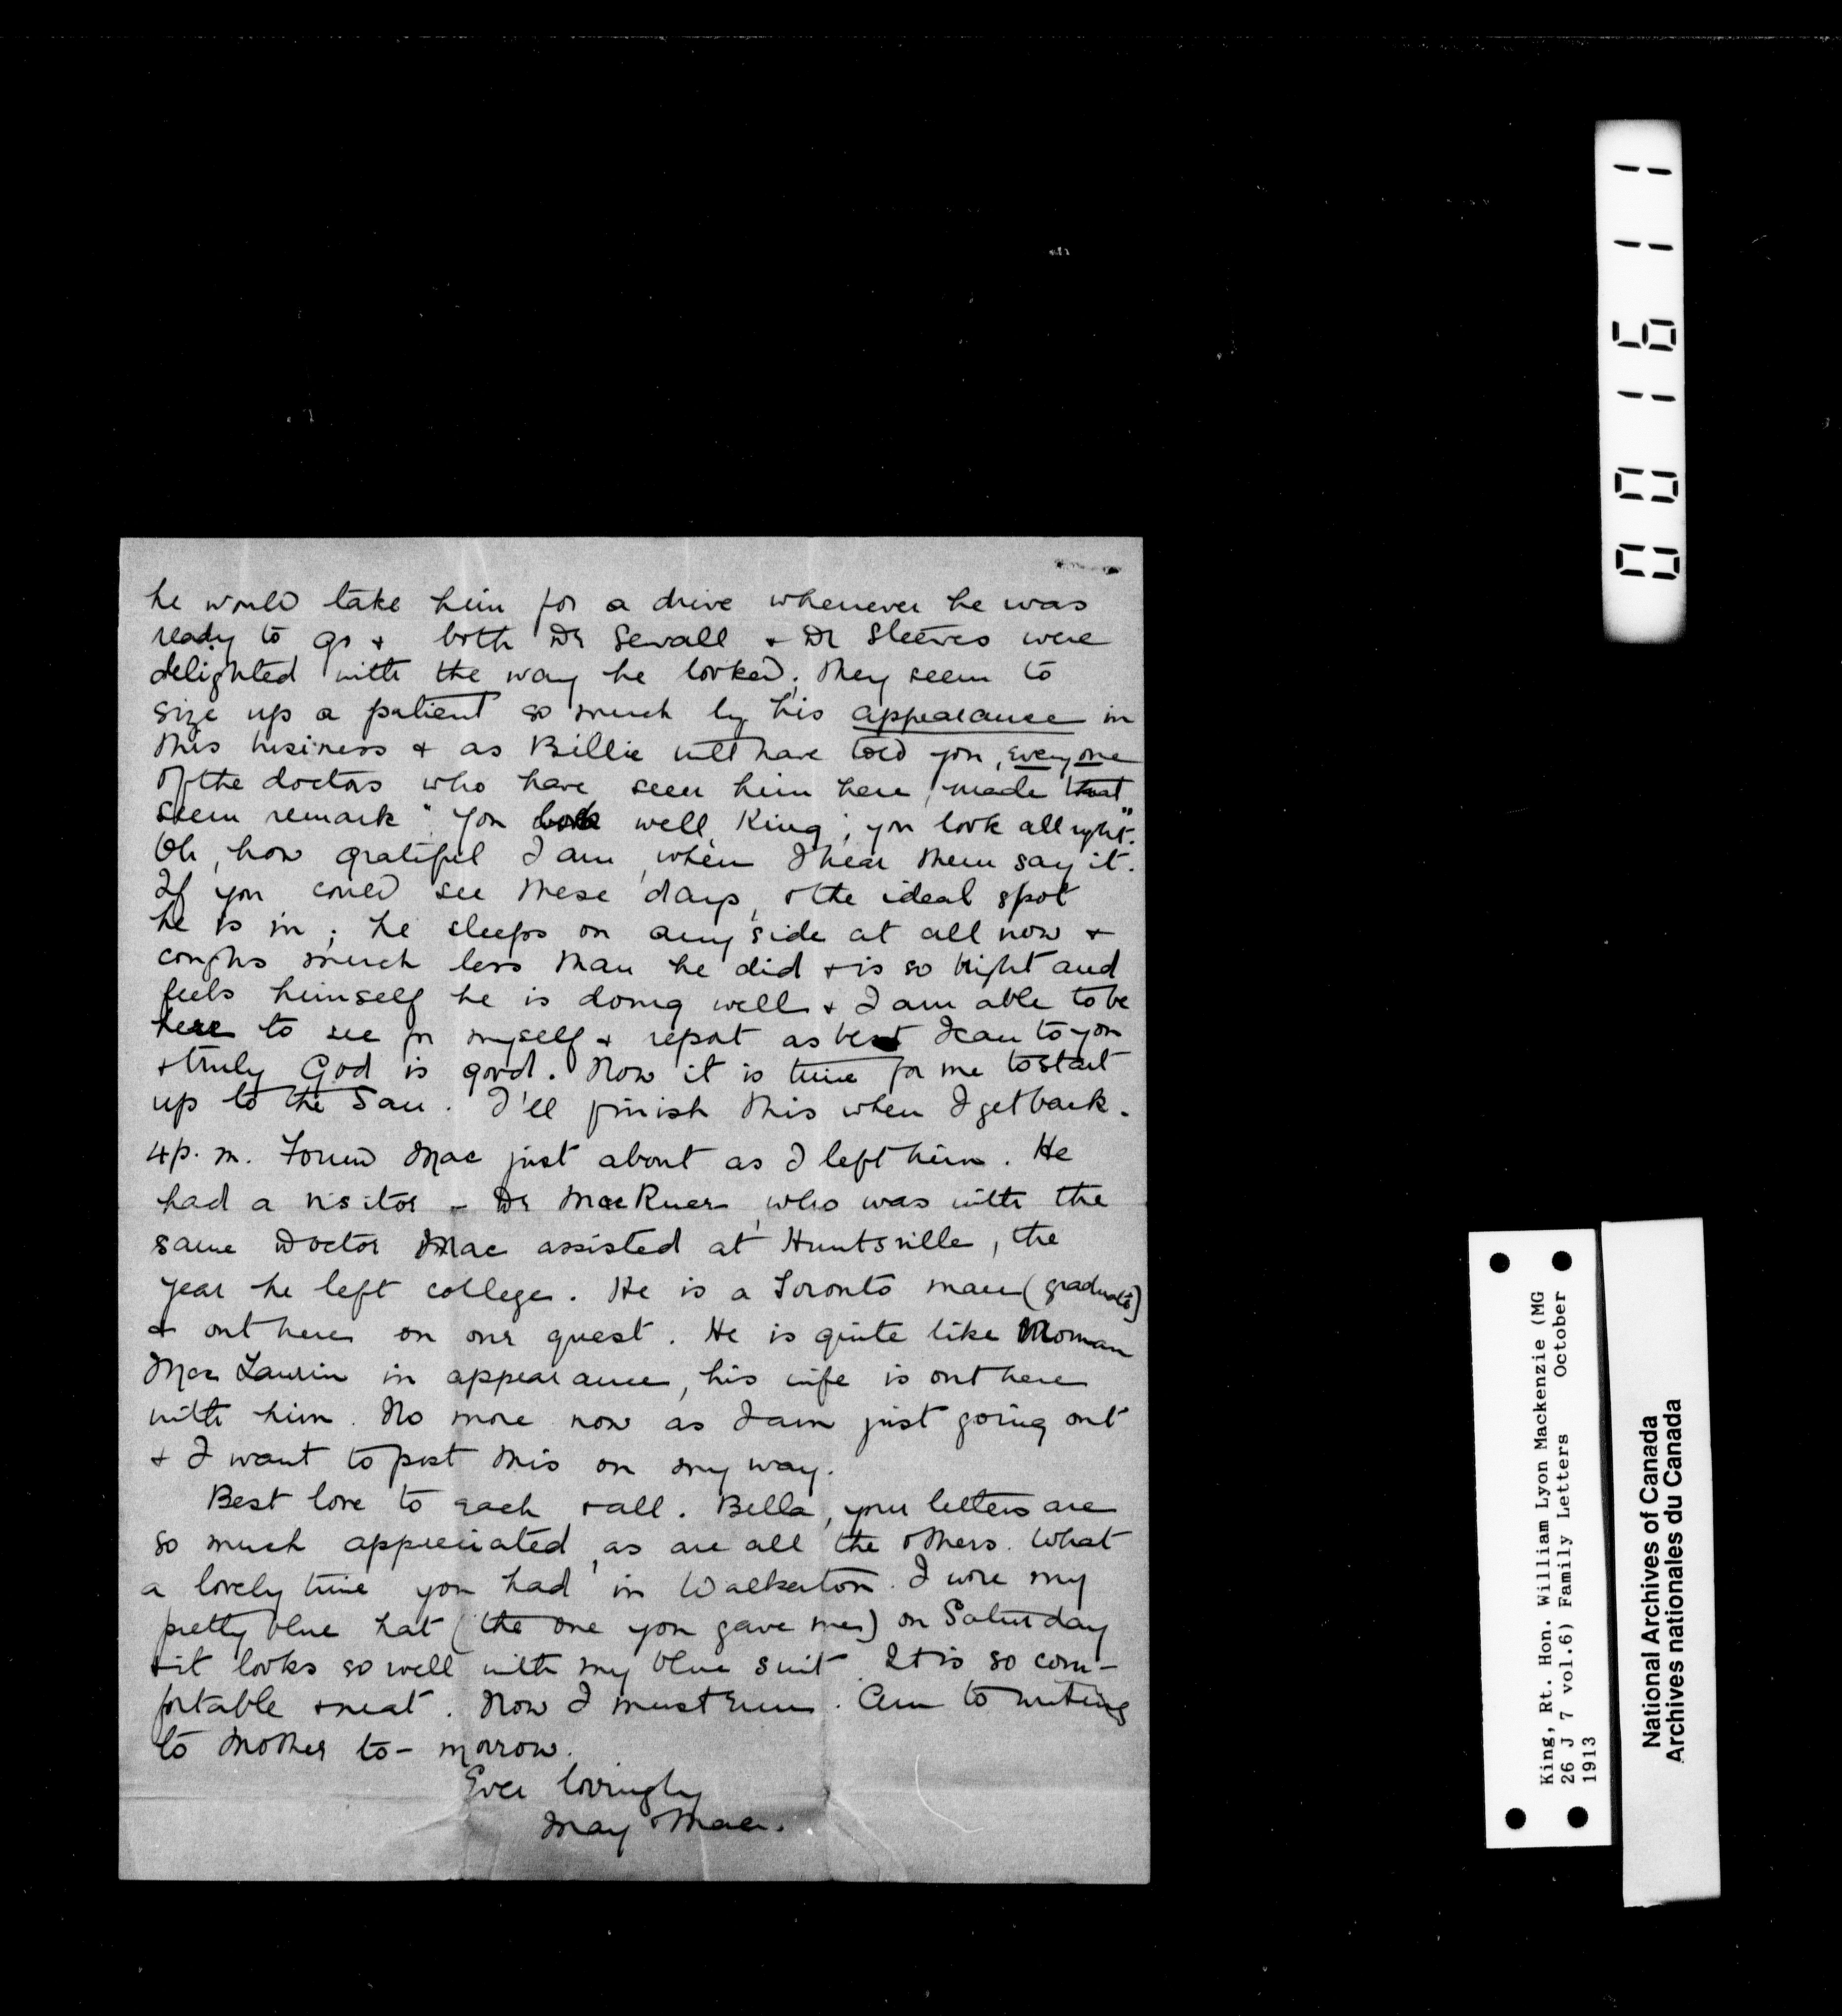 he would take him for a drive whenever he was
ready to go & both Dr Sewall & Dr Sleeves were
delighted with the way he looked; they seem to
size up a patient so much by his appearance in
this business & as Billie will have told you, every one
of the doctors who have seen him here, made that
seem remark "You look well, King; you look all right."
Oh, how grateful I am, when I hear them say it.
If you could see these days, & the ideal spot
he is in; he sleeps on any side at all now &
coughs much less than he did & is so bright and
feels himself he is doing well & I am able to be
here to see for myself & report as best I can to you
& truly God is good. Now it is time for me to start
up to the San. I'll finish this when I get back.
4 p.m. Found Mac just about as I left him. He
had a visitor - Dr who was with the
same Doctor Mac assisted at Huntsville, the
year he left college. He is a Toronto man (graduate)
& out here on our quest. He is quite like
MacLaurin in appearance, his wife is out here
with him. No more now as I am just going out
& I want to post this on my way.
Best love to each & all. Bella, your letters are
so much appreciated, as are all the others. What
a lovely time you had in Walkerton. I wore my
pretty blue hat (the one you gave me) on Saturday
& it looks so well with my blue suit. It is so com-
fortable & neat. Now I must run. Am to writing
to Mother to-morrow.
Ever lovingly
May & Mac.
001611
King, Rt. Hon. William Lyon Mackenzie (MG
26 J 7 vol.6) Family Letters October
1913
National Archives of Canada
Archives nationales du Canada